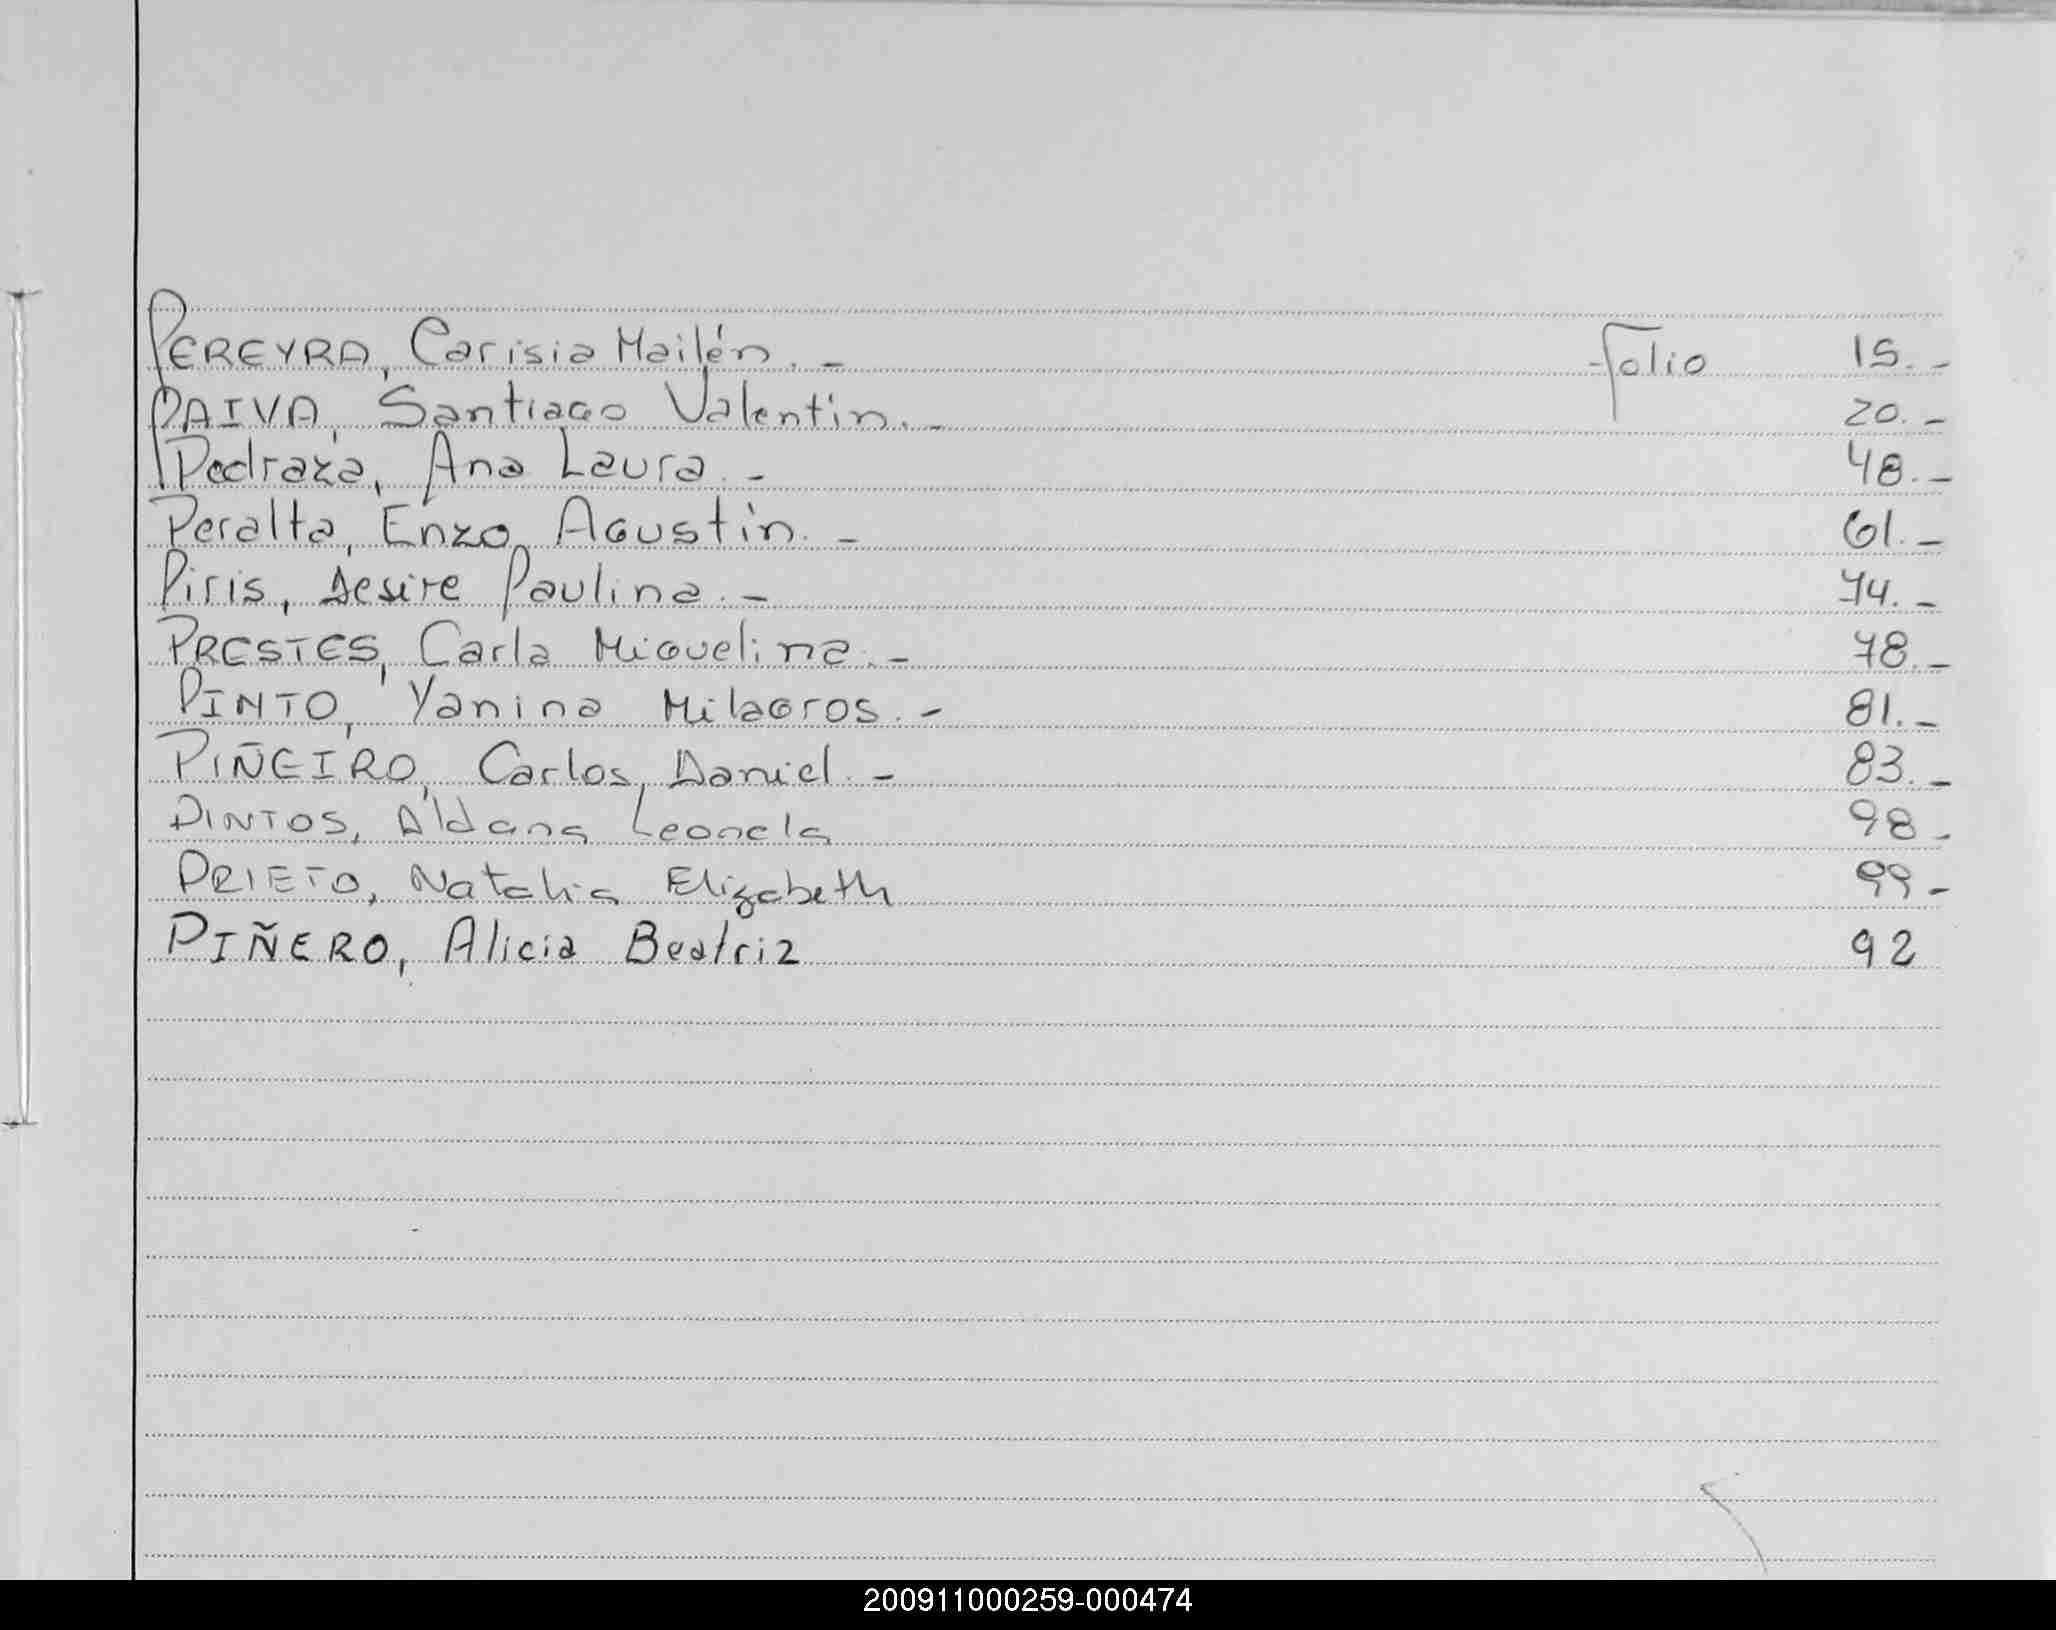 PEREYRA, Carisia Mailén.- folio 15.-
PAIVA, Santiago Valentin.- 20.-
Pedraza, Ana Laura.- 48.-
Peralta, Enzo Agustín.- 61.-
Piris, Desire Paulina.- 74.-
PRESTES, Carla Miguelina.- 78.-
PINTO, Yanina Milagros.- 81.-
PIÑEIRO, Carlos Daniel.- 83.-
PINTOS, Aldana Leonela 98-
PRIETO, Natalia Elizabeth 99-
PIÑERO, Alicia Beatriz 92
200911000259-000474